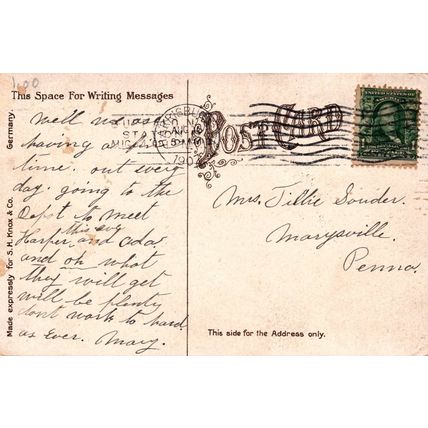 1.00
This Space For Writing Messages
POST CARD
HARRISBURG
AUG
190
STAT
Well we are
having a fine
time. out every
day. going to the
Depot to meet
this eve
Harper and Ada.
and oh what
they will get
will be plenty
dont work to hard
as Ever. Mary.
Mrs. Tillie Souder.
Marysville.
Penna.
This side for the Address only.
Made expressly for S. H. Knox & Co. Germany.